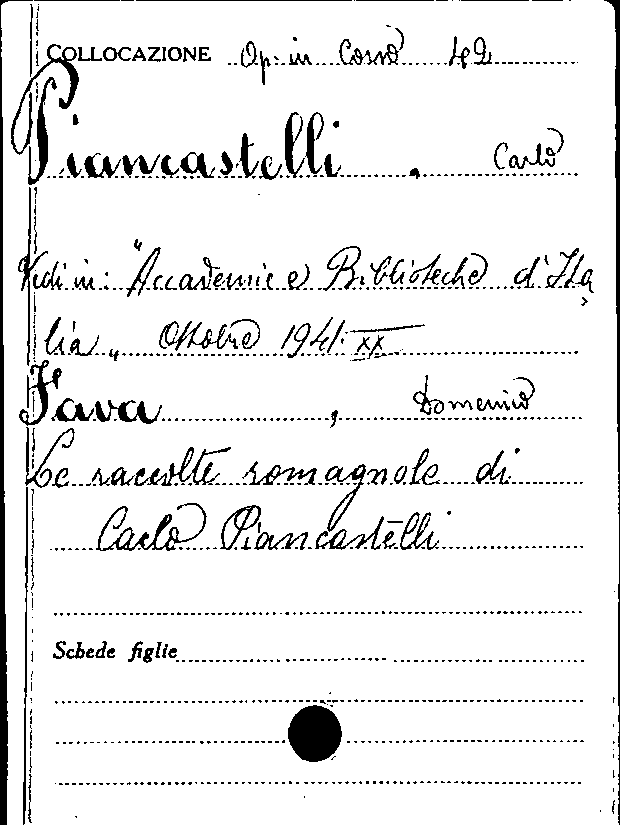 COLLOCAZIONE Op. in Corso 42
Piancastelli, Carlo
Vedi in: "Accademie e Biblioteche d'Ita
lia„ Ottobre 1941. XX
Fava, Domenico
Le raccolte romagnole di
Carlo Piancastelli
Schede figlie